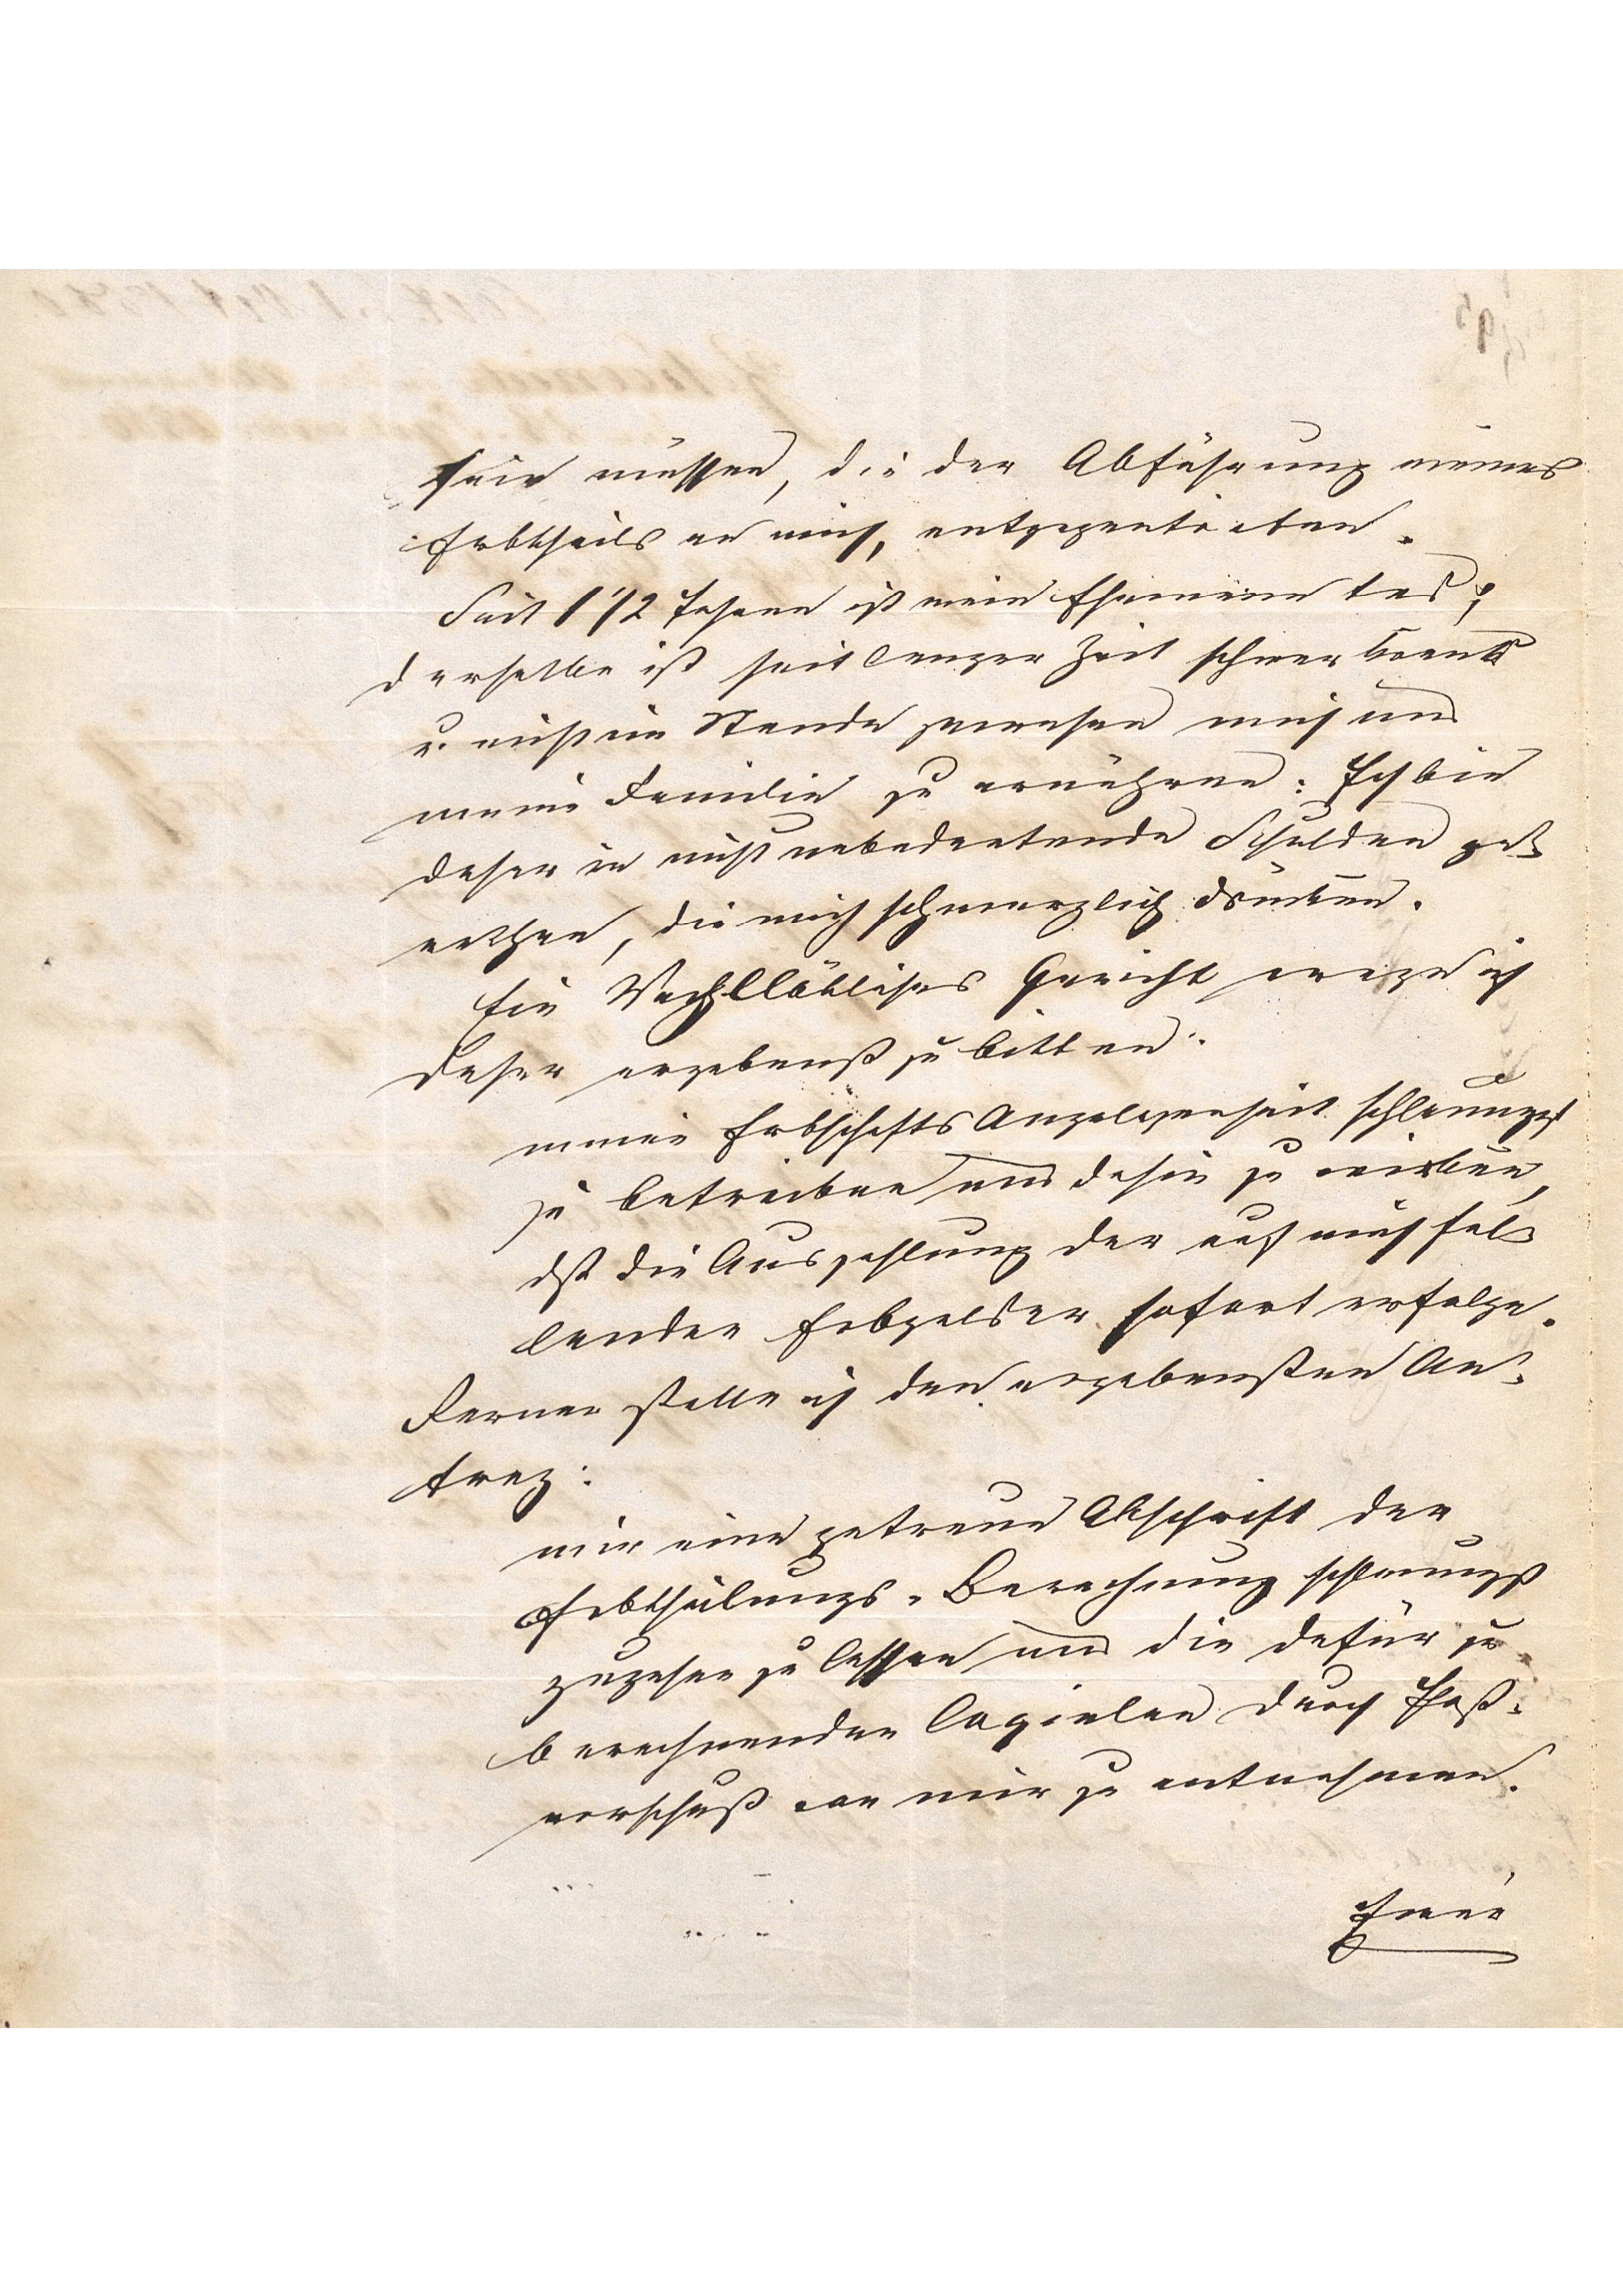 sein müssen, die der Abführung meines
Erbtheils an mich, entgegentreten.
Seit 1 1/2 Jahren ist mein Ehemann todt;
derselbe ist seit langer Zeit schwer krank
u. nicht im Stande gewesen mich und
meine Familie zu ernähren: Ich bin
daher in nicht unbedeutende Schulden ge-
rathen, die mich schmerzlich drücken.
Ein Wohllöbliches Gericht wage ich
daher ergebenst zu bitten:
meine Erbschafts Angelegenheit schleunigst
zu betreiben und dahin zu wirken,
daß die Auszahlung der auf mich fal-
lenden Erbgelder sofort erfolge.
Ferner stelle ich den ergebensten An-
trag:
mir eine getreue Abschrift der
Erbtheilungs-Berechnung schleunigst
zugehen zu lassen und die dafür zu
berechnenden Copialen durch Post-
vorschuß von mir zu entnehmen.